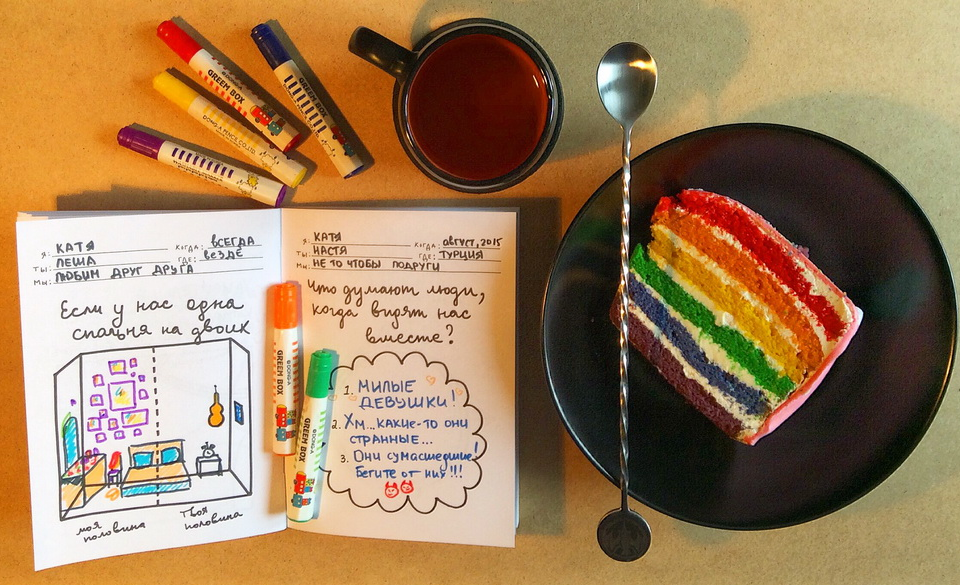 GREEM BOX
GREEM BOX
DONG-A PENCIL CO., LTD.
Я: КАТЯ КОГДА: ВСЕГДА
ТЫ: ЛЕША ГДЕ: ВЕЗДЕ
МЫ: ЛЮБИМ ДРУГ ДРУГА
Если у нас одна
спальня на двоих
моя
половина
твоя
половина
Я: КАТЯ КОГДА: АВГУСТ, 2015
ТЫ: НАСТЯ ГДЕ: ТУРЦИЯ
МЫ: НЕ ТО ЧТОБЫ ПОДРУГИ
Что думают люди,
когда видят нас
вместе?
1. МИЛЫЕ
ДЕВУШКИ!
2. Хм...какие-то они
странные...
3. Они сумасшедшие!
Бегите от них!!!
GREEM BOX
DONG-A
GREEM BOX
DONG-A